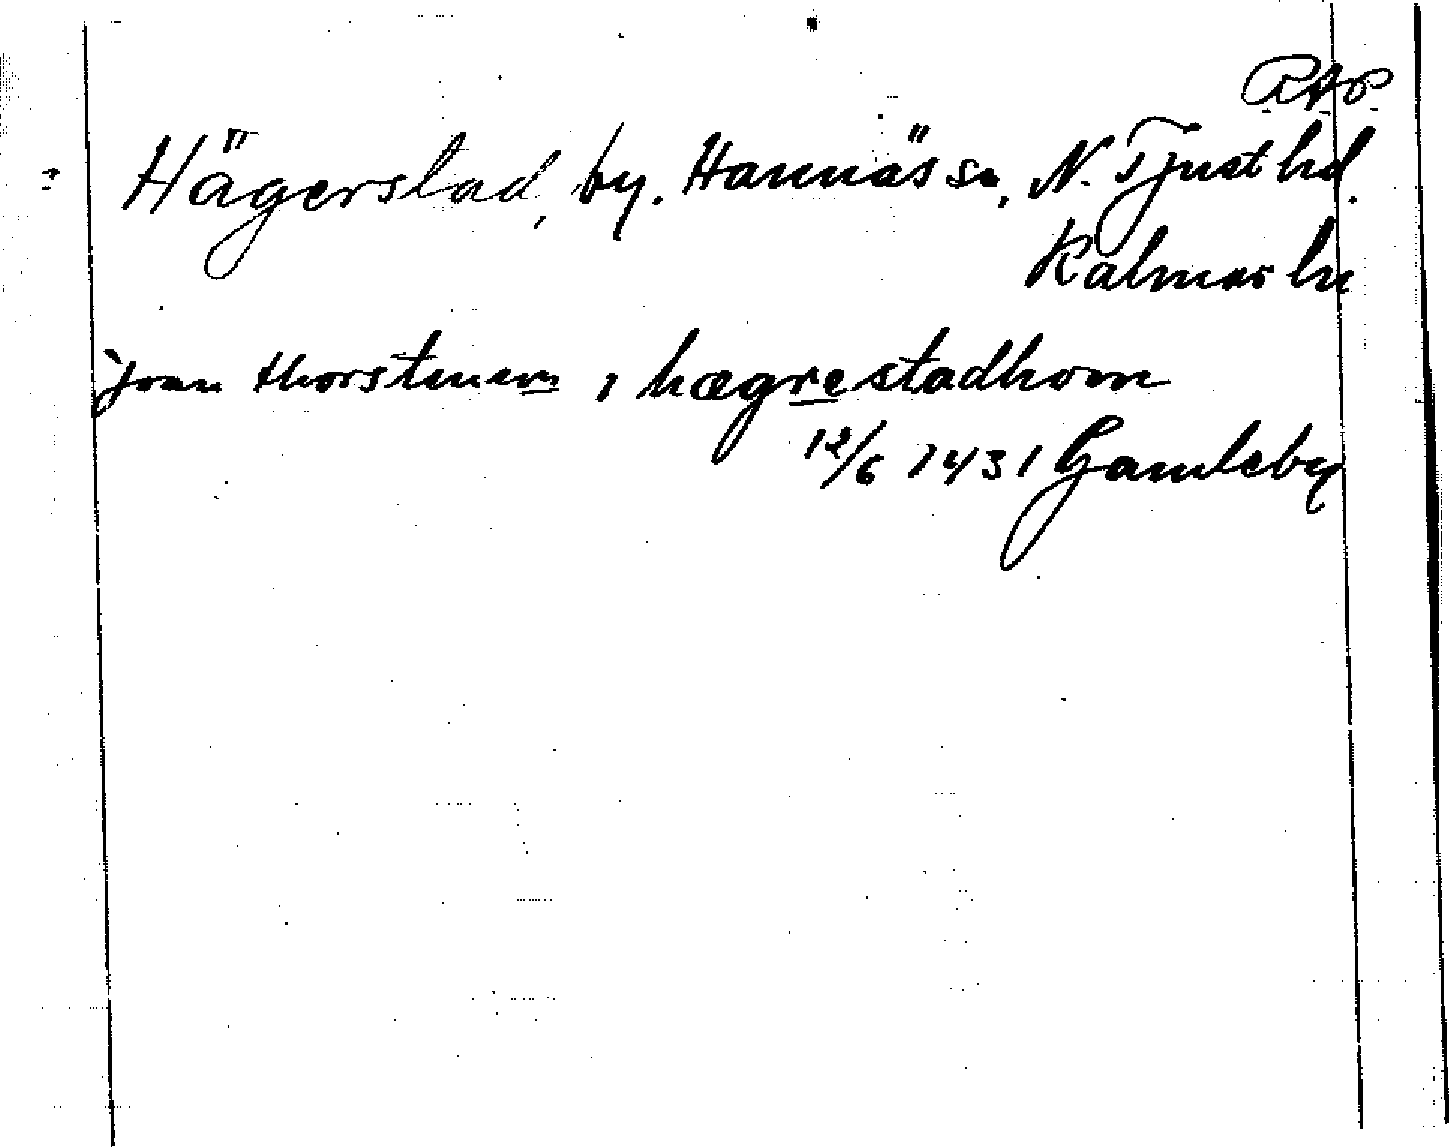 RAP
Hägerstad, by. Hannäs sn, N. Tjust hd.
Kalmar ln
joan thorstensson i hægrestadhom
12/6 1431 Gamleby